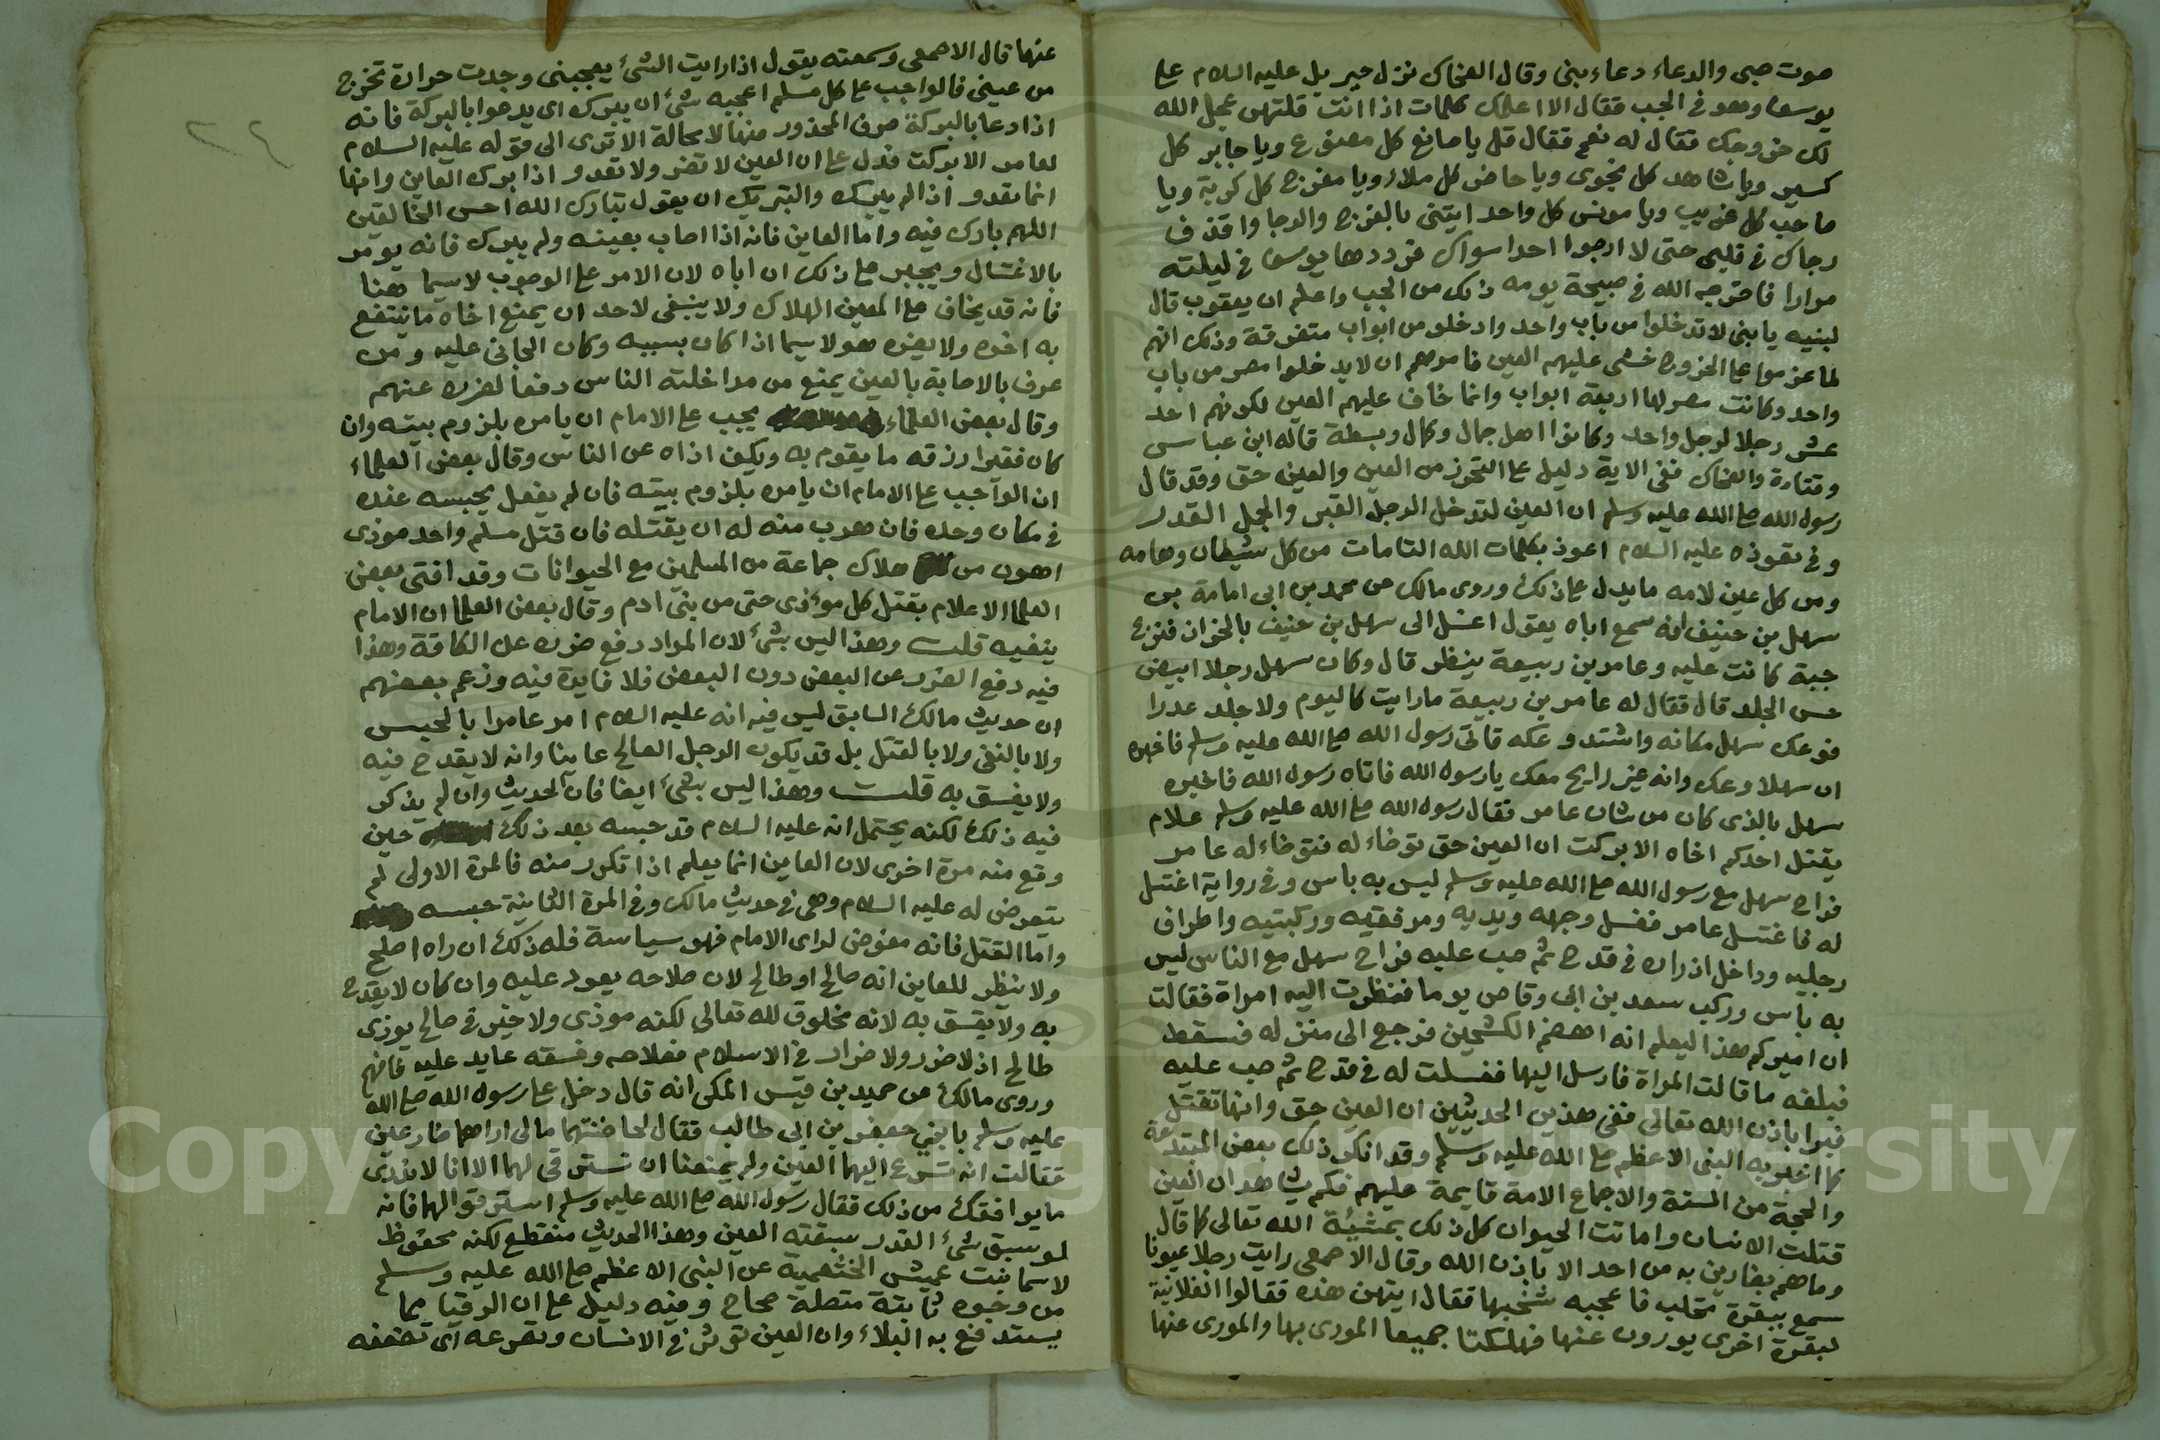 صوت صبى والدعاء دعاء بنى وقال الضحاك نزل جبريل عليه السلام على
يوسف وهو فى الجب فقال الا اعلمك كلمات اذا انت قلتهن عجل الله
لك خروجك فقال له نعم فقال قل يا صانع كل مصنوع ويا جابر كل
كسير ويا شاهد كل نجوى ويا حاضر كل ملاء ويا مفرج كل كربة ويا
صاحب كل غريب ويا مونس كل واحد ايتنى بالفرج والرجا واقذف
رجاك فى قلبى حتى لا ارجوا احدا سواك فرددها يوسف فى ليلته
مرارا فاخرجه الله فى صبيحة يومه ذلك من الجب واعلم ان يعقوب قال
لبنيه يا بنى لا تدخلوا من باب واحد وادخلو من ابواب متفرقة وذلك انهم
لما عزموا على الخروج خشى عليهم العين فامرهم ان لا يدخلوا مصر من باب
واحد وكانت مصر لها اربعة ابواب وانما خاف عليهم العين لكونهم احد
عشر رجلا لرجل واحد وكانوا اهل جمال وكمال وبسطة قاله ابن عباس
وقتادة والضحاك ففى الاية دليل على التحرز من العين والعين حق وقد قال
رسول الله صلى الله عليه وسلم ان العين لتدخل الرجل القبر والجمل القدر
وفى تعوذه عليه السلام اعوذ بكلمات الله التامات من كل شيطان وهامه
ومن كل عين لامه ما يدل على ذلك وروى مالك عن محمد بن ابى امامة بن
سهل بن حنيف انه سمع اباه يقول اغتسل ابى سهل بن حنيف بالخرار فنزع
جبة كانت عليه وعامر بن ربيعة ينظر قال وكان سهل رجلا ابيض
حسن الجلد قال فقال له عامر بن ربيعة ما رايت كاليوم ولا جلد عذرا
فوعك سهل مكانه واشتد وعكه فاتى رسول الله صلى الله عليه وسلم فاخبره
ان سهلا وعك وانه غير رايح معك يا رسول الله فاتاه رسول الله فاخبره
سهل بالذى كان من شان عامر فقال رسول الله صلى الله عليه وسلم علام
يقتل احدكم اخاه الا بركت ان العين حق توضاء له فتوضاء له عامر
فراح سهل مع رسول الله صلى الله عليه وسلم ليس به باس وفى رواية اغتسل
له فاغتسل عامر فغسل وجهه ويديه ومرفقيه وركبتيه واطراف
رجليه وداخل ازاره فى قدح ثم صب عليه فراح سهل مع الناس ليس
به باس وركب سعد بن ابى وقاص يوما فنظرت اليه امراة فقالت
ان اميركم هذا ليعلم انه اهضم الكشحين فرجع الى منزله فسقط
فبلغه ما قالت المراة فارسل اليها فغسلت له فى قدح ثم صب عليه
فبرا باذن الله تعالى ففى هذين الحديثين ان العين حق وانها تقتل
كما اخبر به النبى الاعظم صلى الله عليه وسلم وقد انكر ذلك بعض المبتدعة
والحجة من السنة والاجماع الامة قايمة عليهم فكم يشاهد ان العين
قتلت الانسان واماتت الحيوان كل ذلك بمشيئة الله تعالى كما قال
وما هم بضارين به من احد الا باذن الله وقال الاصمعى رايت رجلا عيونا
سمع ببقرة تحلب فاعجبه شخبها فقال ايتهن هذه فقالوا الفلانية
لبقرة اخرى يورون عنها فهلكتا جميعا المورى بها والمورى عنها
عنها قال الاصمعى وسمعته يقول اذا رايت الشئ يعجبنى وجدت حرارة تخرج
من عينى فالواجب على كل مسلم اعجبه شئ ان يبرك اى يدعوا بالبركة فانه
اذا دعا بالبركة صرف المحذور منها لا محالة الا ترى الى قوله عليه السلام
لعامر الا بركت فدل على ان العين لا تضر ولا تعدو اذا برك العاين وانها
انما تعدو اذا لم يبرك والتبريك ان يقول تبارك الله احسن الخالقين
اللهم بارك فيه واما العاين فانه اذا اصاب بعينه ولم يبرك فانه يومر
بالاغتسال ويجبر على ذلك ان اباه لان الامر على الوجوب لاسيما هنا
فانه قد يخاف على المعين الهلاك ولا ينبغى لاحد ان يمنع اخاه ما ينتفع
به اخوه ولا يضره هو لا سيما اذا كان بسببه وكان الجانى عليه ومن
عرف بالاصابة بالعين يمنع من مداخلته الناس دفعا لضرره عنهم
وقال بعض العلماء يجب على الامام ان يامره بلزوم بيته وان
كان فقيرا رزقه ما يقوم به ويكف اذاه عن الناس وقال بعض العلماء
ان الواجب على الامام ان يامره بلزوم بيته فان لم يفعل يحبسه عنده
فى مكان وحده فان هرب منه له ان يقتله فان قتل مسلم واحد موذى
اهون من هلاك جماعة من المسلمين مع الحيوانات وقد افتى بعض
العلما الاعلام بقتل كل موذى حتى من بنى ادم وقال بعض العلما ان الامام
ينفيه قلت وهذا ليس بشئ لان المراد رفع ضرره عن الكافة وهذا
فيه دفع الضرر عن البعض دون البعض فلا فايدة فيه وزعم بعضهم
ان حديث مالك السابق ليس فيه انه عليه السلام امر عامرا بالحبس
ولا بالنفى ولا بالقتل بل قد يكون الرجل الصالح عاينا وانه لا يقدح فيه
ولا يفسق به قلت وهذا ليس بشئ ايضا فان الحديث وان لم يذكر
فيه ذلك لكنه يحتمل انه عليه السلام قد حبسه بعد ذلك حين
وقع منه مرة اخرى لان العاين انما يعلم اذا تكرر منه فالمرة الاولى لم
يتعرض له عليه السلام وهى فى حديث مالك وفى المرة الثانية حبسه
واما القتل فانه مفوض لراى الامام فهو سياسة فله ذلك ان راه اصلح
ولا ينظر للعاين انه صالح او طالح لان صلاحه يعود عليه وان كان لا يقدح
به ولا يفسق به لانه مخلوق لله تعالى لكنه موذى ولا خير فى صالح يوذى
طالح اذ لا ضرر ولا ضرار فى الاسلام فصلاحه وفسقه عايد عليه فافهم
وروى مالك عن حميد بن قيس المكى انه قال دخل على رسول الله صلى الله
عليه وسلم بابنى جعفر بن ابى طالب فقال لحاضنتهما مالى اراهما ضارعين
فقالت انه تسرع اليهما العين ولم يمنعنا ان نسترقى لهما الا انا لا ندرى
ما يوافقك من ذلك فقال رسول الله صلى الله عليه وسلم استرقوا لهما فانه
لو سبق شئ القدر سبقته العين وهذا الحديث منقطع لكنه محفوظ
لاسما بنت عميش الخثعمية عن النبى الاعظم صلى الله عليه وسلم
من وجوه ثابتة متصلة صحاح وفيه دليل على ان الرقيا مما
يستدفع به البلاء وان العين توثر فى الانسان وتضرعه اى تضعفه
Copyright © King Saud University